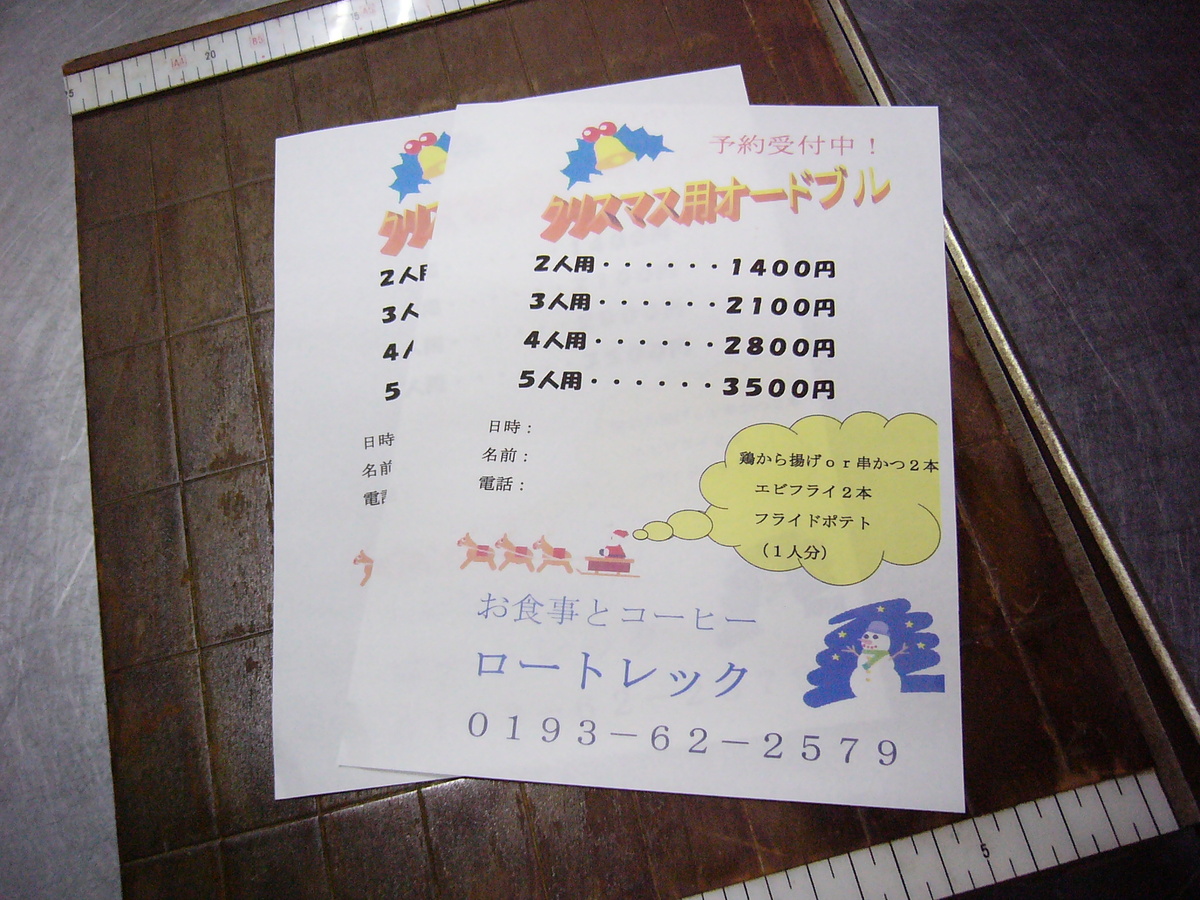 予約受付中！
クリスマス用オードブル
２人用・・・・・・１４００円
３人用・・・・・・２１００円
４人用・・・・・・２８００円
５人用・・・・・・３５００円
日時：
名前：
電話：
鶏から揚げｏｒ串かつ２本
エビフライ２本
フライドポテト
（１人分）
お食事とコーヒー
ロートレック
０１９３－６２－２５７９
クリス
２人用
３人
４人
５
日時
名前
電話
15
20
5